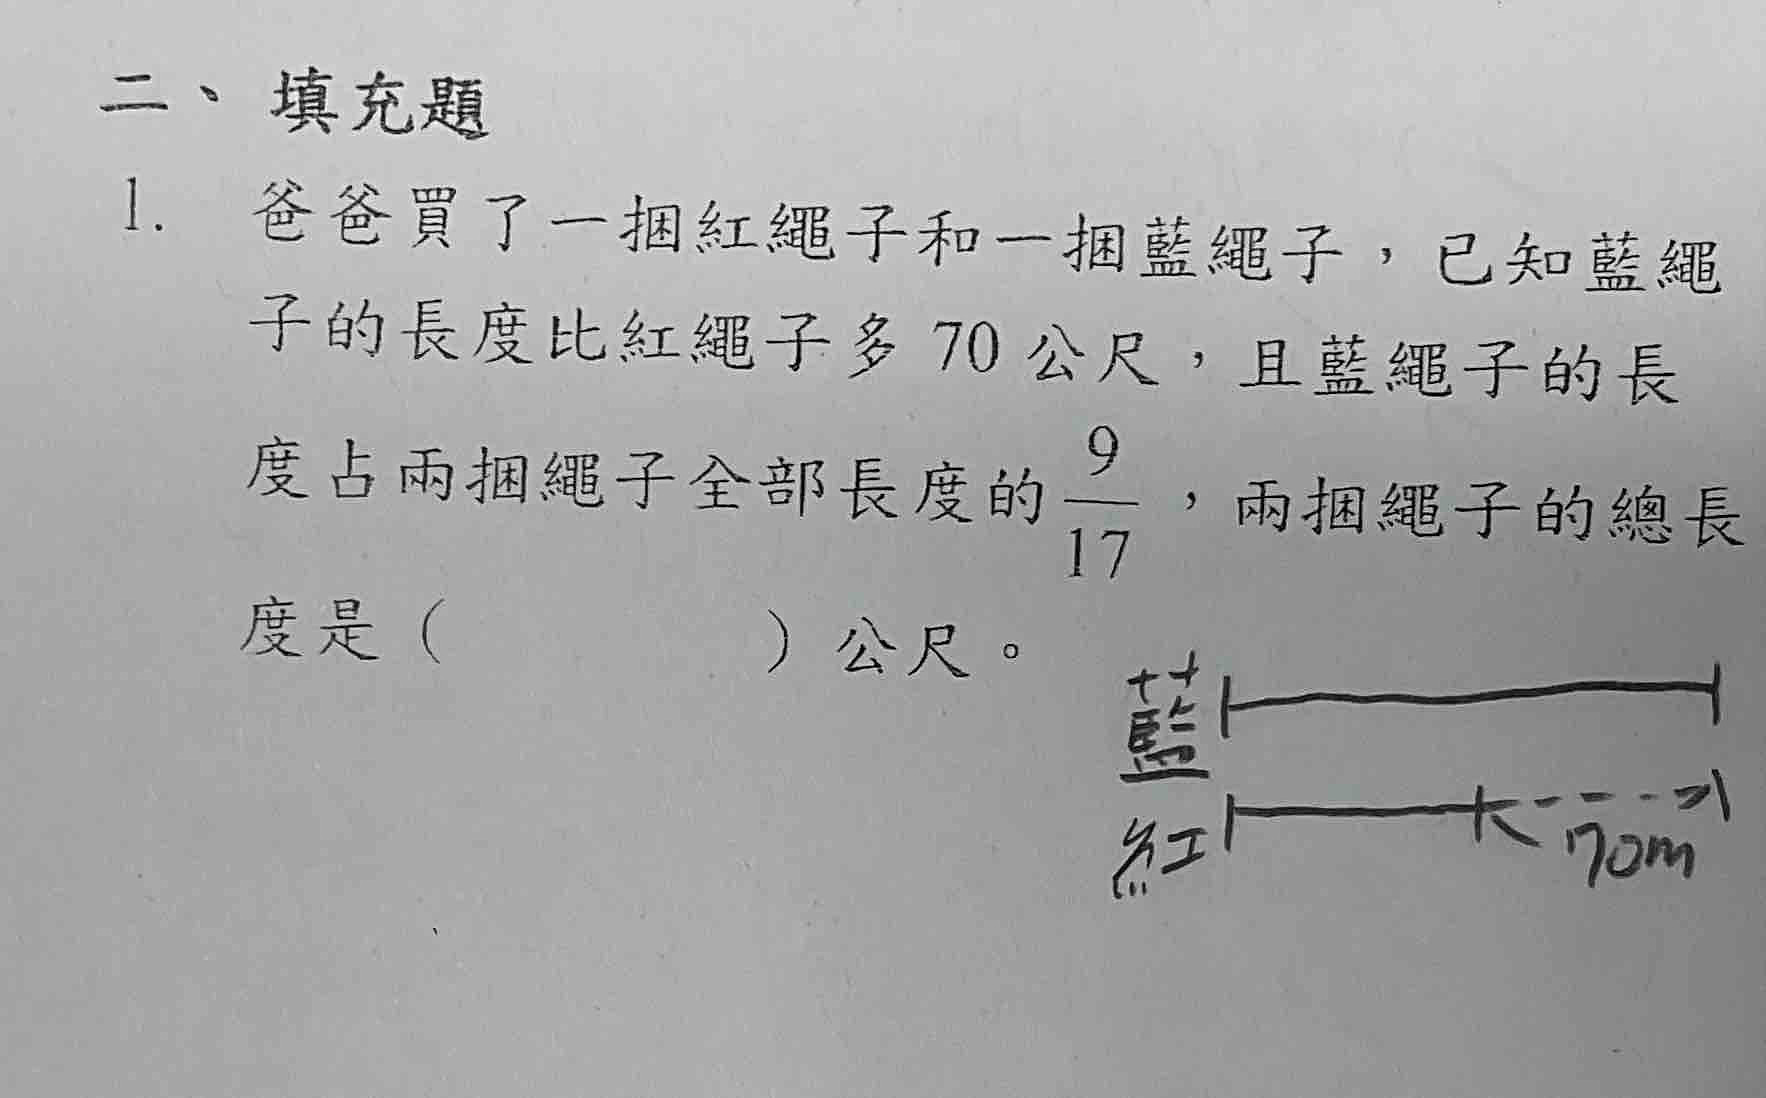 二、填充題
1. 爸爸買了一捆紅繩子和一捆藍繩子，已知藍繩
子的長度比紅繩子多 70 公尺，且藍繩子的長
度占兩捆繩子全部長度的 9/17，兩捆繩子的總長
度是（　　　）公尺。
藍
紅 70m